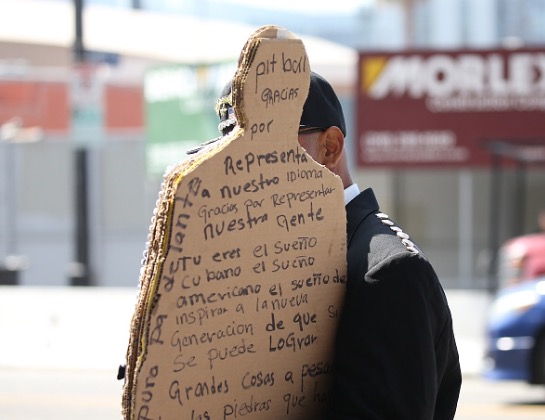 pit boll
GRACIAS
por
Representa
a nuestro idioma
Gracias por Representar
nuestra gente
Tu eres el sueño
cubano el sueño
americano el sueño de
inspirar a la nueva
Generacion de que si
se puede LoGrar
Grandes cosas a pesa
las piedras que
pura pa delante
MORLEX